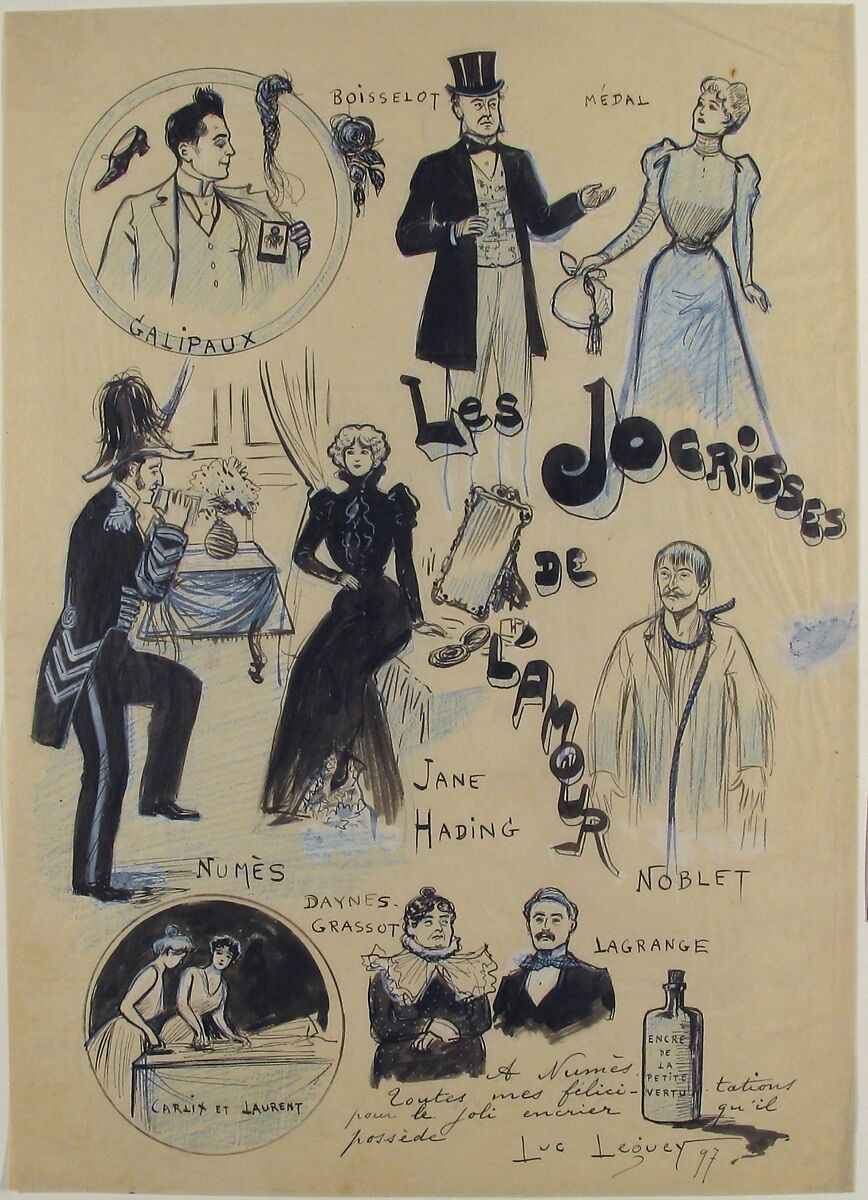 BOISSELOT
MÉDAL
GALIPAUX
Les
JOCRISSES
DE
L'AMOUR
JANE
HADING
NUMÈS
NOBLET
DAYNES-
GRASSOT
LAGRANGE
CARLIX ET LAURENT
ENCRE
DE
LA
PETITE
VERTU
A Numès.
Toutes mes félici-tations
pour le joli encrier qu'il
possède
Luc Leguey 97